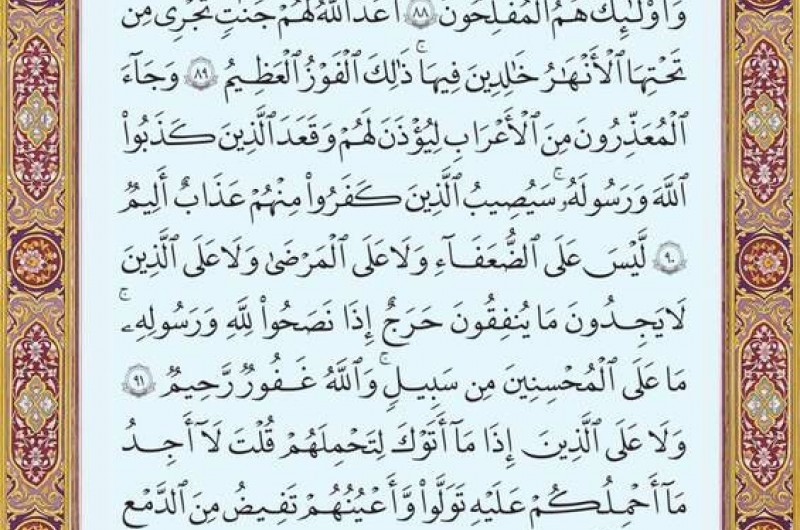 وَأُوْلَٰٓئِكَ هُمُ ٱلْمُفْلِحُونَ ٨٨ أَعَدَّ ٱللَّهُ لَهُمْ جَنَّٰتٍ تَجْرِى مِن
تَحْتِهَا ٱلْأَنْهَٰرُ خَٰلِدِينَ فِيهَا ۚ ذَٰلِكَ ٱلْفَوْزُ ٱلْعَظِيمُ ٨٩ وَجَآءَ
ٱلْمُعَذِّرُونَ مِنَ ٱلْأَعْرَابِ لِيُؤْذَنَ لَهُمْ وَقَعَدَ ٱلَّذِينَ كَذَبُوا۟
ٱللَّهَ وَرَسُولَهُۥ ۚ سَيُصِيبُ ٱلَّذِينَ كَفَرُوا۟ مِنْهُمْ عَذَابٌ أَلِيمٌ
٩٠ لَّيْسَ عَلَى ٱلضُّعَفَآءِ وَلَا عَلَى ٱلْمَرْضَىٰ وَلَا عَلَى ٱلَّذِينَ
لَا يَجِدُونَ مَا يُنفِقُونَ حَرَجٌ إِذَا نَصَحُوا۟ لِلَّهِ وَرَسُولِهِۦ ۚ
مَا عَلَى ٱلْمُحْسِنِينَ مِن سَبِيلٍ ۚ وَٱللَّهُ غَفُورٌ رَّحِيمٌ ٩١
وَلَا عَلَى ٱلَّذِينَ إِذَا مَآ أَتَوْكَ لِتَحْمِلَهُمْ قُلْتَ لَآ أَجِدُ
مَآ أَحْمِلُكُمْ عَلَيْهِ تَوَلَّوا۟ وَّأَعْيُنُهُمْ تَفِيضُ مِنَ ٱلدَّمْعِ